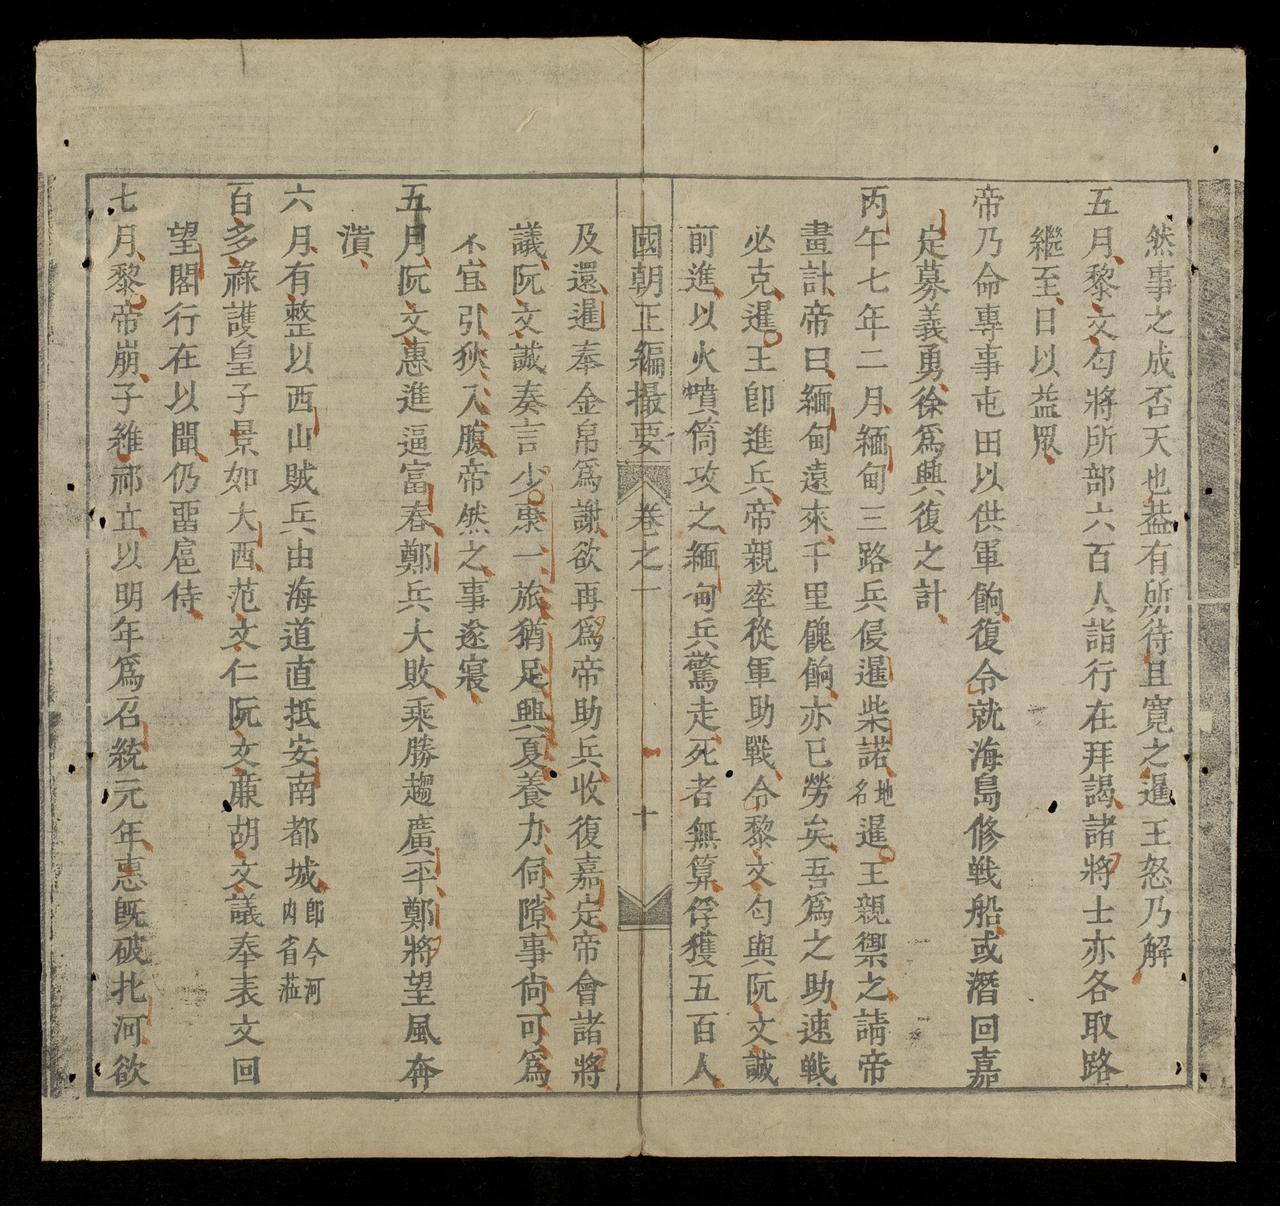 然事之成否天也葢有所待且寬之暹王怒乃解
五月黎文匀將所部六百人詣行在拜謁諸將士亦各取路
繼至日以益眾
帝乃命專事屯田以供軍餉復令就海島修戰船或潛回嘉
定募義勇徐爲興復之計
丙午七年二月緬甸三路兵侵暹柴諾地名暹王親禦之請帝
畫計帝曰緬甸遠來千里餽餉亦已勞矣吾爲之助速戰
必克暹王卽進兵帝親率從軍助戰令黎文匀與阮文誠
前進以火噴筒攻之緬甸兵驚走死者無算俘獲五百人
國朝正編撮要 卷之一 十
及還暹奉金帛爲謝欲再爲帝助兵收復嘉定帝會諸將
議阮文誠奏言少康一旅猶足興夏養力伺隙事尙可爲
不宜引狄入腹帝然之事遂寢
五月阮文惠進逼富春鄭兵大敗乘勝趨廣平鄭將望風奔
潰
六月有整以西山賊兵由海道直抵安南都城卽今河內省莅
百多祿護皇子景如大西范文仁阮文亷胡文議奉表文回
望閣行在以聞仍畱扈侍
七月黎帝崩子維祁立以明年爲召統元年惠旣破北河欲